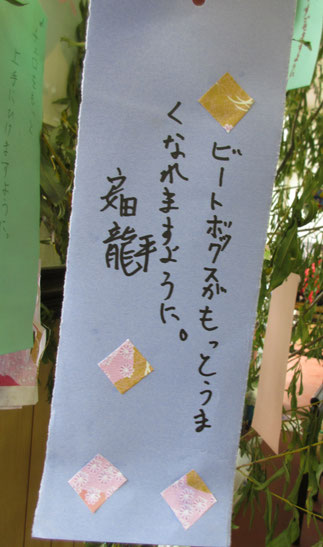 ビートボックスがもっとうま
くなれますように。
上手にひけますように。